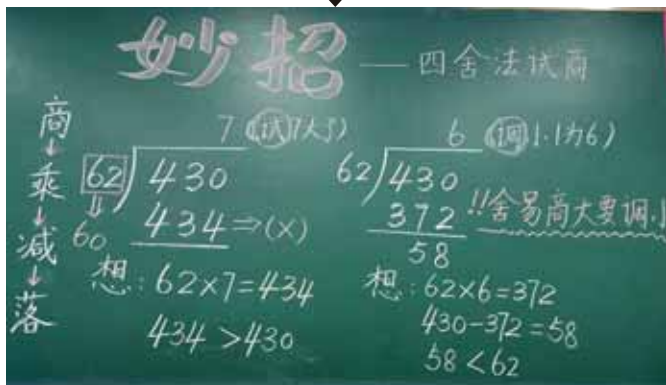 妙招——四舍法试商
商→乘→减→落
7 (试7大了)
62)430
60
434⇒(×)
想:62×7=434
434>430
6 (调小1为6)
62)430
372
58
!!舍易商大要调小
想:62×6=372
430-372=58
58<62